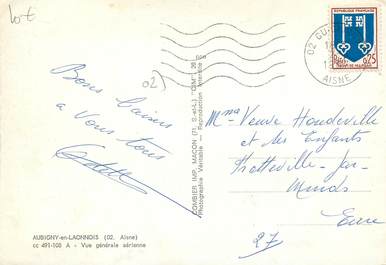 lot
02)
Bons baisers
à Vous tous
AUBIGNY-en-LAONNOIS (02, Aisne)
cc 491-108 A - Vue générale aérienne
COMBIER IMP. MACON (71, S.-et-L.) "CIM"
Photographie Véritable — Reproduction Interdite
RÉPUBLIQUE FRANÇAISE
0,25
02 GU
AISNE
Mme Veuve Houdeville
et ses Enfants
Eure
27